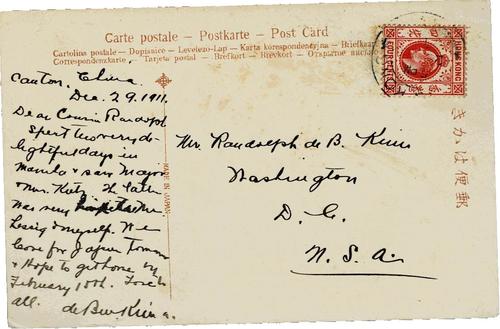 Carte postale — Postkarte — Post Card
Cartolina postale — Dopisnice — Levelezö-Lap — Karta korespondencyjna — Briefkaart
Correspondenzkarte — Tarjeta postal — Brefkort — Brevkort —
HONG KONG
FOUR CENTS
郵便はかき
MADE IN JAPAN
Canton, China.
Dec. 29. 1911.
Dear Cousin Randolph
Spent two very de-
lightful days in
Manila & saw Major
& Mrs. The latter
was very to the
Leesing & myself. We
leave for Japan Tomorrow
& Hope to get home by
February 10th. Love to
all. de B
Mr. Randolph de B. Keim
Washington
D. C.
U. S. A.